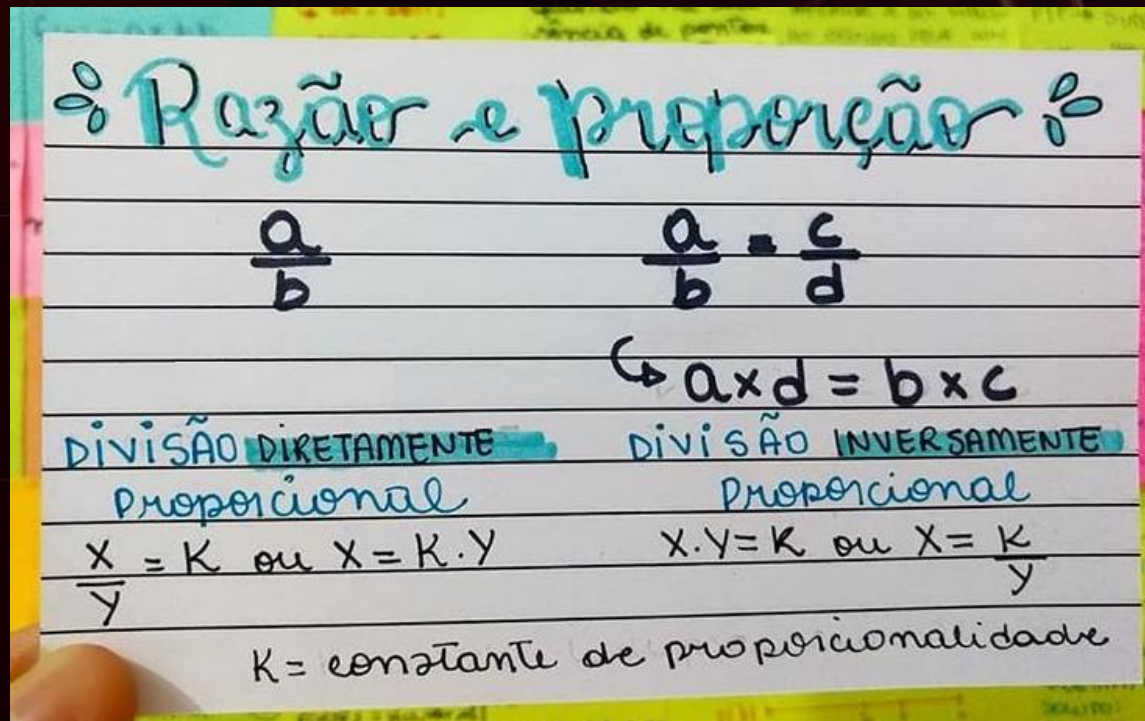 Razão e proporção
a/b
a/b = c/d
↳ a x d = b x c
DIVISÃO DIRETAMENTE
proporcional
X/Y = K ou X = K.Y
DIVISÃO INVERSAMENTE
proporcional
X.Y=K ou X= K/Y
K= constante de proporcionalidade